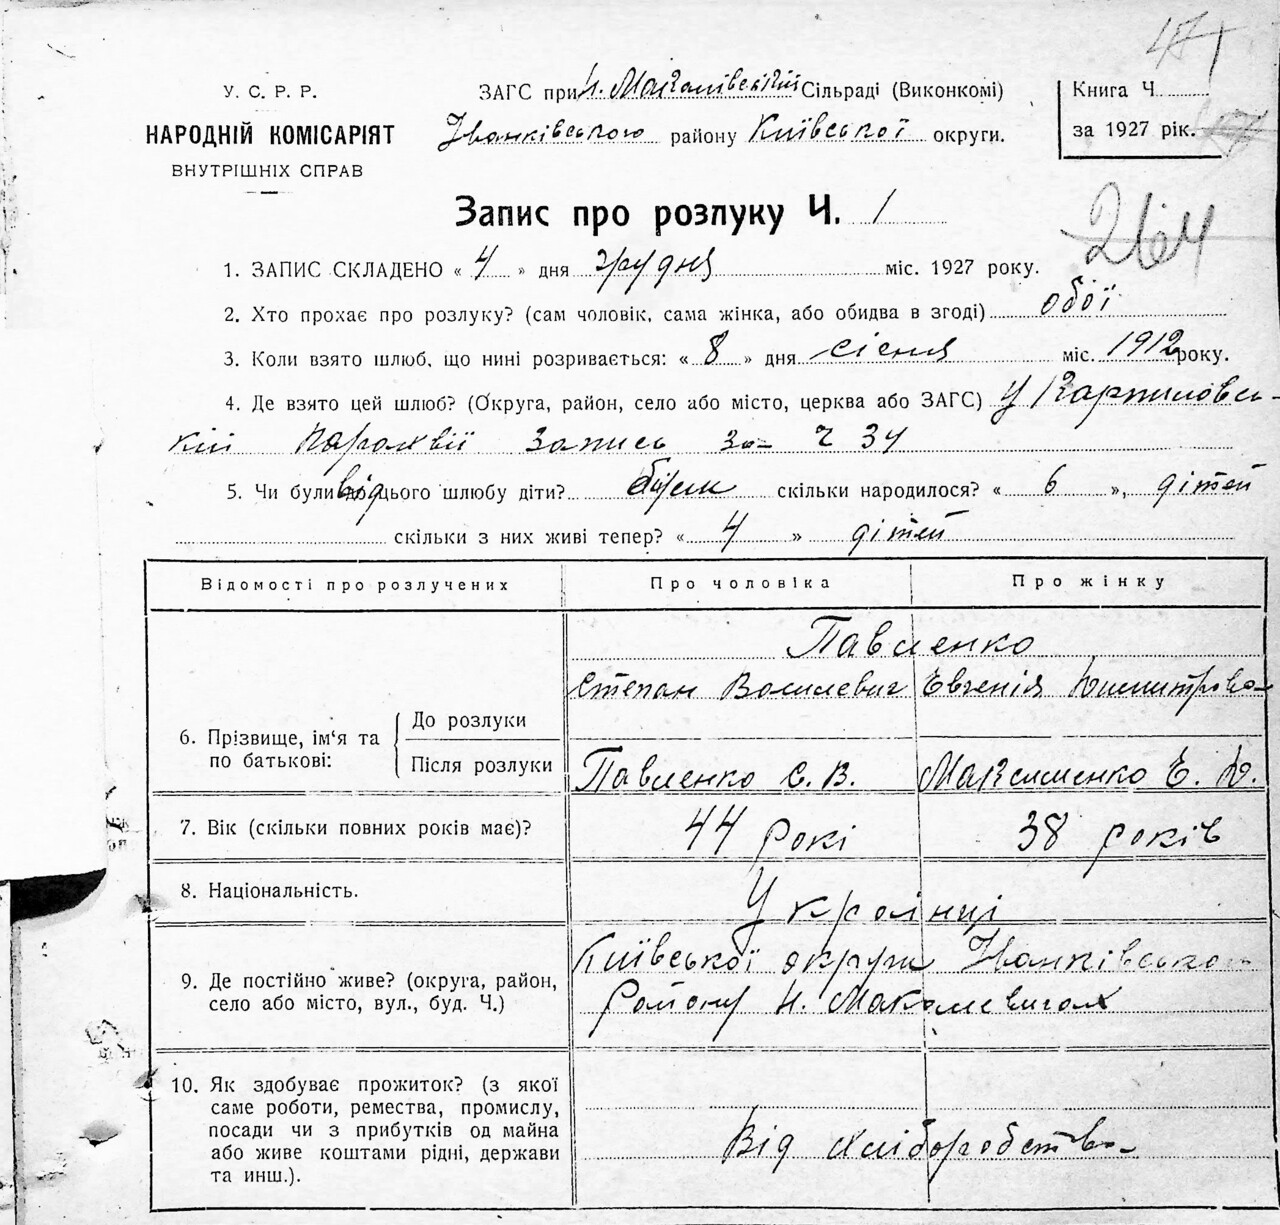 471
У. С. Р. Р.
НАРОДНІЙ КОМІСАРІЯТ
ВНУТРІШНІХ СПРАВ
ЗАГС при Н. Макалівській Сільраді (Виконкомі)
Іванківського району Київської округи.
Книга Ч.
за 1927 рік.
Запис про розлуку Ч. 1
264
1. ЗАПИС СКЛАДЕНО « 4 » дня грудня міс. 1927 року.
2. Хто прохає про розлуку? (сам чоловік, сама жінка, або обидва в згоді) обої
3. Коли взято шлюб, що нині розривається: « 8 » дня січня міс. 1912 року.
4. Де взято цей шлюб? (Округа, район, село або місто, церква або ЗАГС) У
кій Парахвії Запись за Ч 34
5. Чи були від цього шлюбу діти? були скільки народилося? « 6 », дітей
скільки з них живі тепер? « 4 » дітей
Відомості про розлучених
Про чоловіка
Про жінку
6. Прізвище, ім‘я та по батькові:
До розлуки
Після розлуки
Павленко
Степан Василевич
Евгенія Дмитрова
Павленко С. В.
Максименко Е. Д.
7. Вік (скільки повних років має)?
44 рокі
38 років
8. Національність.
Українці
9. Де постійно живе? (округа, район,
село або місто, вул., буд. Ч.)
Київської округи Іванківського
району Н. Макалевичах
10. Як здобуває прожиток? (з якої
саме роботи, ремества, промислу,
посади чи з прибутків од майна
або живе коштами рідні, держави
та инш.).
Від хліборобства